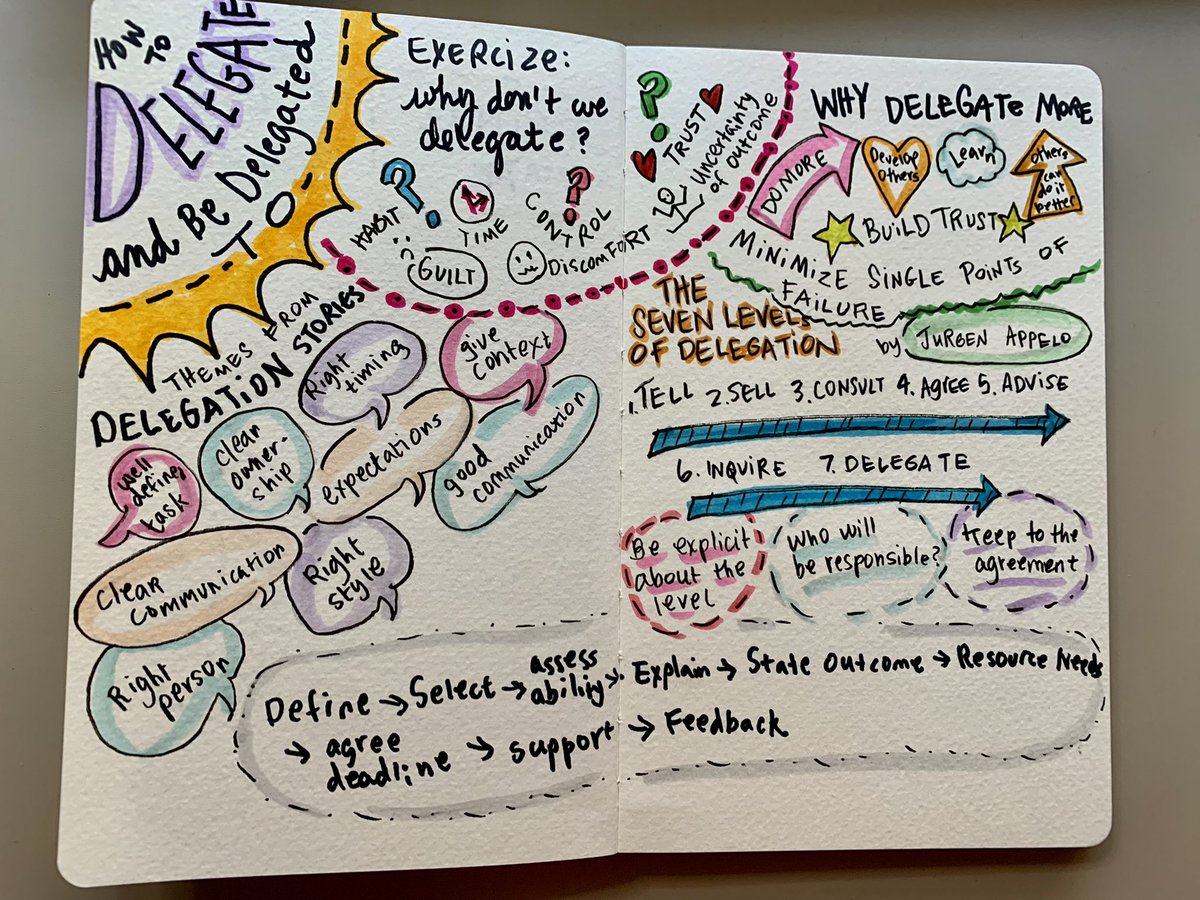 HOW TO
DELEGATE
and Be Delegated
TO
EXERCIZE:
why don't we
delegate?
HABIT
GUILT
TIME
CONTROL
DISCOMFORT
TRUST
Uncertainty
of outcome
WHY DELEGATE MORE
DO MORE
Develop
others
Learn
others
can
do it
better
BUILD TRUST
MINIMIZE SINGLE POINTS OF
FAILURE
THEMES FROM
DELEGATION STORIES
Right
timing
give
context
well
define,
task
clear
owner-
ship
expectations
good
communication
clear
communication
Right
style
Right
person
THE
SEVEN LEVELS
OF DELEGATION
by JURGEN APPELO
1. TELL 2. SELL 3. CONSULT 4. AGREE 5. ADVISE
6. INQUIRE 7. DELEGATE
Be explicit
about the
level
Who will
be responsible?
Keep to the
agreement
Define → Select → assess
ability → Explain → State Outcome → Resource Needs
→ agree
deadline → support → Feedback